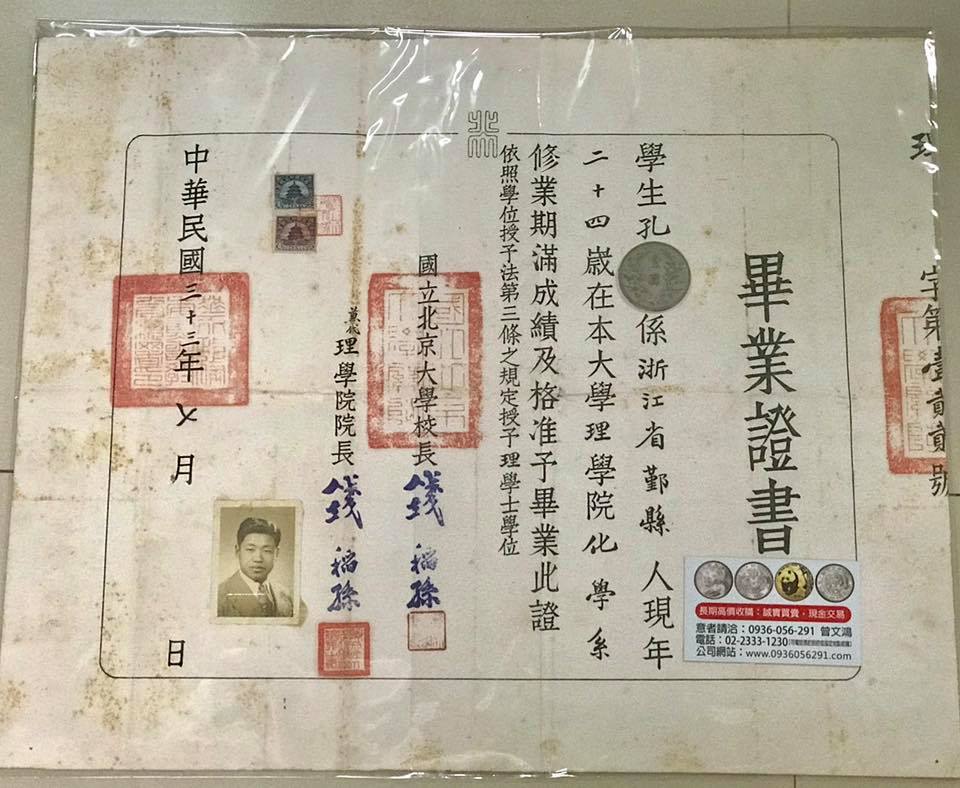 畢業證書
學生孔
係浙江省鄞縣人現年
二十四歲在本大學理學院化學系
修業期滿成績及格准予畢業此證
依照學位授予法第三條之規定授予理學士學位
國立北京大學校長 錢稻孫
兼代理學院院長 錢稻孫
中華民國三十三年七月 日
字第壹貳貳號
長期高價收購：誠實買賣，現金交易
意者請洽：0936-056-291 曾文鴻
電話：02-2333-1230
公司網站：www.0936056291.com